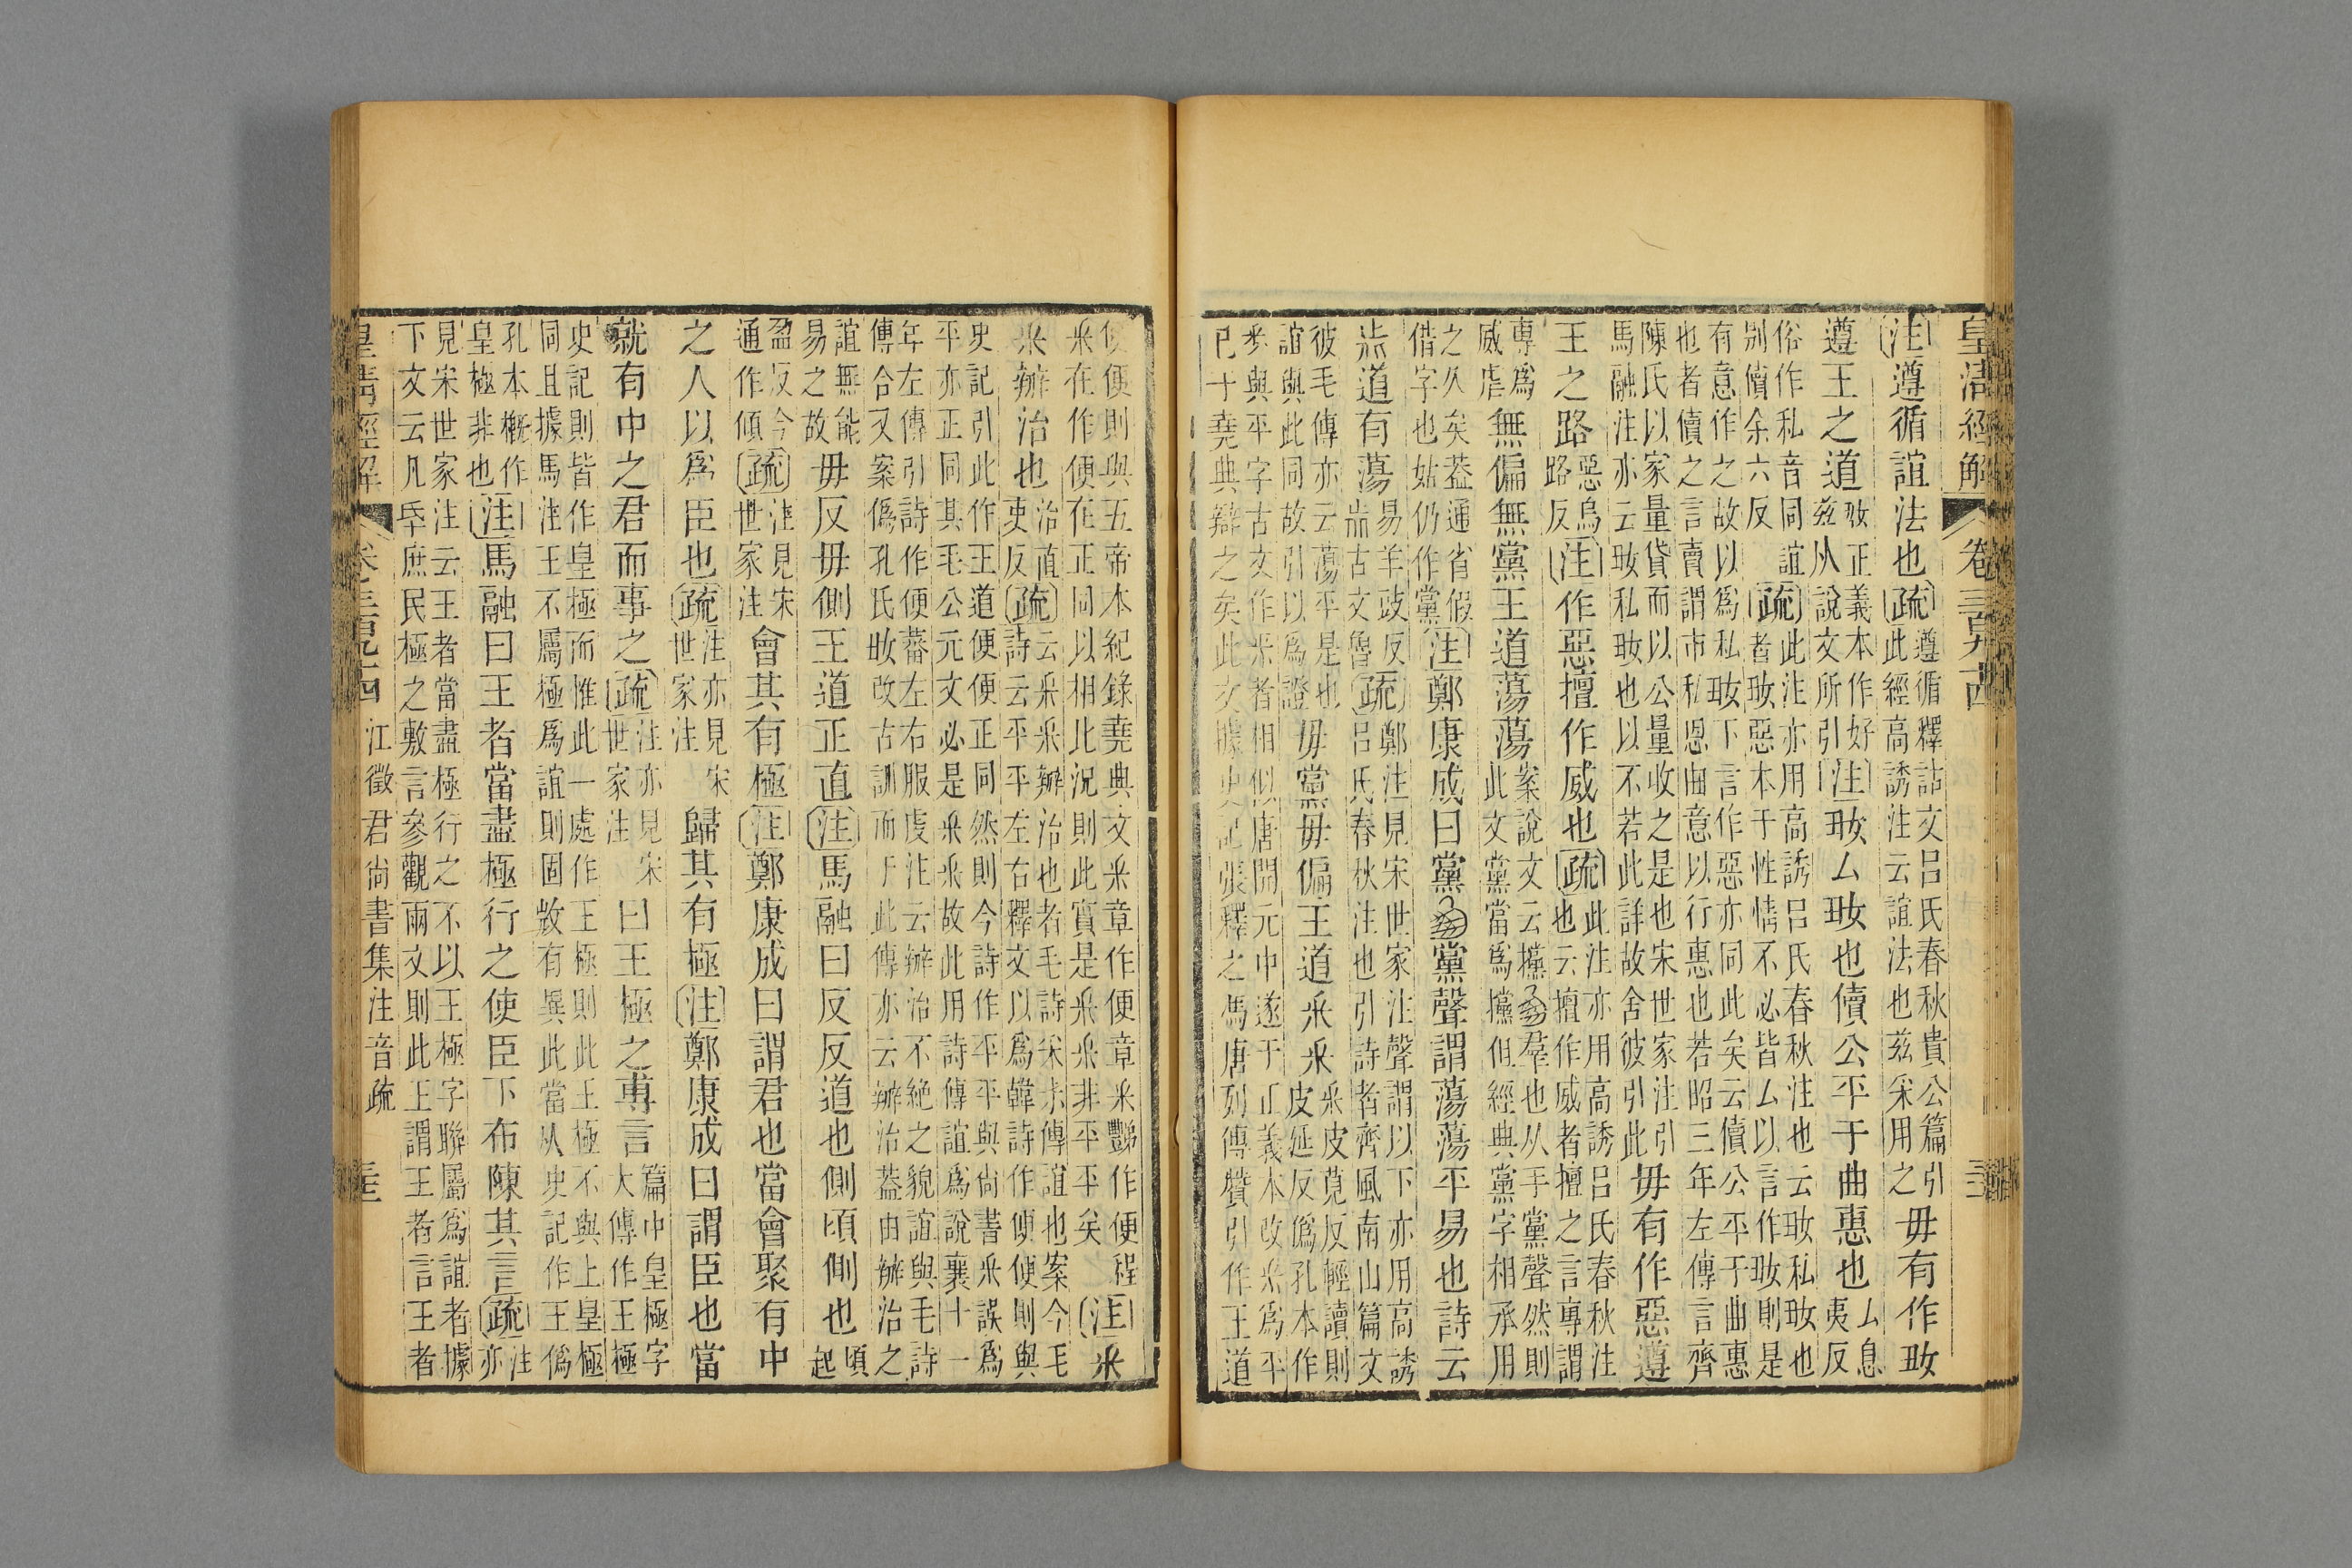 皇清經解 卷三百九十四
注遵循誼法也疏遵循釋詁文呂氏春秋貴公篇引此經高誘注云誼法也茲采用之毋有作𡚽
遵王之道𡚽正義本作好茲从說文所引注𡚽厶𡚽也儥公平于曲惠也厶息夷反
俗作私音同誼别儥余六反疏此注亦用高誘呂氏春秋注也云𡚽私𡚽也者𡚽惡本于性情不必皆厶以言作𡚽則是
有意作之故以爲私𡚽下言作惡亦同此矣云儥公平于曲惠也者儥之言賣謂市私恩曲意以行惠也若昭三年左傳言齊
陳氏以家量貸而以公量收之是也宋世家注引此馬融注亦云𡚽私𡚽也以不若此詳故舍彼引此毋有作惡遵
王之路惡烏路反注作惡擅作威也疏此注亦用高誘呂氏春秋注也云擅作威者擅之言專謂
專爲威虐無偏無黨王道蕩蕩案說文云攩朋羣也从手黨聲然則此文黨當爲攩但經典黨字相承用
之久矣葢通省假借字也姑仍作黨注鄭康成曰黨朋黨聲謂蕩蕩平易也詩云
𣥐道有蕩易羊豉反𣥐古文魯疏鄭注見宋世家注聲謂以下亦用高誘呂氏春秋注也引詩者齊風南山篇文
彼毛傳亦云蕩平是也誼與此同故引以爲證毋黨毋偏王道釆釆釆皮莧反輕讀則皮延反僞孔本作
釆與平字古文作釆者相似唐開元中遂于正義本改釆爲平已于堯典辯之矣此文據史記張釋之馮唐列傳贊引作王道
便便則與五帝本紀錄堯典文釆章作便章釆豑作便程釆在作便在正同以相比況則此實是釆釆非平平矣注釆
釆辦治也治直吏反疏云釆釆辦治也者毛詩采尗傳誼也案今毛詩云平平左右釋文以爲韓詩作便便則與
史記引此作王道便便正同然則今詩作平平與尙書釆誤爲平亦正同其毛公元文必是釆釆故此用詩傳誼爲說襄十一
年左傳引詩作便蕃左右服虔注云辦治不絕之貌誼與毛詩傳合又案僞孔氏㪅改古訓而于此傳亦云辦治葢由辦治之
誼無能易之故毋反毋側王道正直注馬融曰反反道也側頃側也頃起
盈反今通作傾疏注見宋世家注會其有極注鄭康成曰謂君也當會聚有中
之人以爲臣也疏注亦見宋世家注歸其有極注鄭康成曰謂臣也當
就有中之君而事之疏注亦見宋世家注曰王極之尃言篇中皇極字大傳作王極
史記則皆作皇極而惟此一處作王極則此王極不與上皇極同且據馬注王不屬極爲誼則固㪚有異此當从史記作王僞
孔本槪作皇極非也注馬融曰王者當盡極行之使臣下布陳其言疏注亦
見宋世家注云王者當盡極行之不以王極字聯屬爲誼者據下文云凡氒庶民極之敷言參觀兩文則此王謂王者言王者
皇清經解 卷三百九十四 江徵君尙書集注音疏